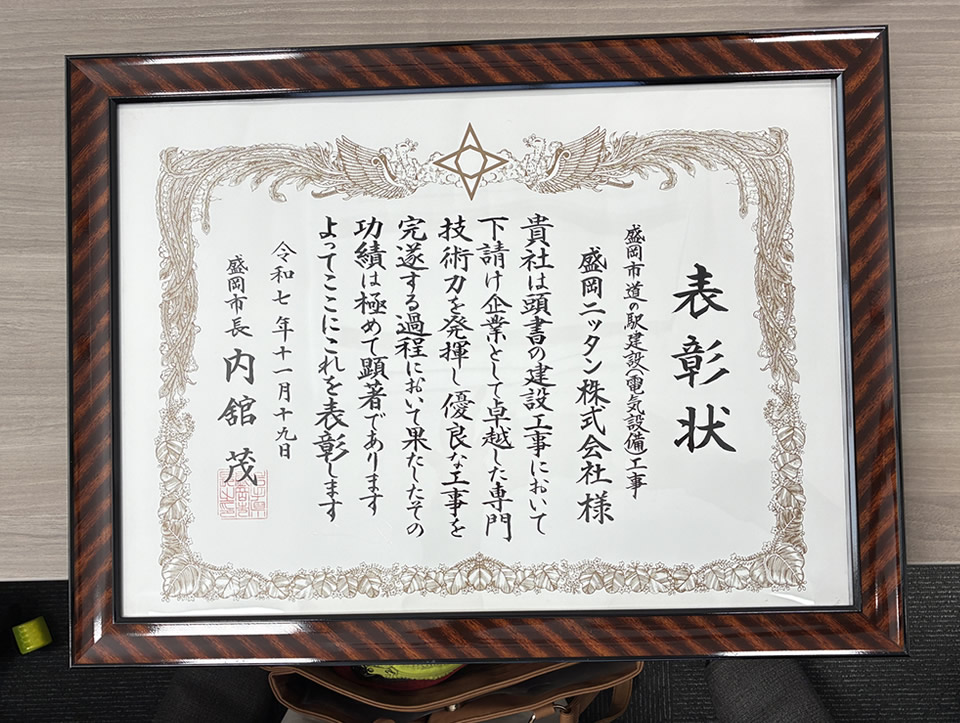 表彰状
盛岡市道の駅建設(電気設備)工事
盛岡ニッタン株式会社様
貴社は頭書の建設工事において
下請け企業として卓越した専門
技術力を発揮し優良な工事を
完遂する過程において果たしたその
功績は極めて顕著であります
よってここにこれを表彰します
令和七年十一月十九日
盛岡市長 内舘 茂